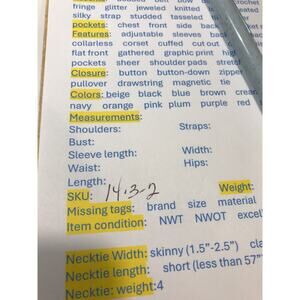 belt bow
fringe glitter jeweled knitted
silky strap studded tasseled
pockets: chest front side back
Features: adjustable sleeves back
collarless corset cuffed cut out
flat front gathered graphic print
pockets sheer shoulder pads stretch
Closure: button button-down zipper
pullover drawstring magnetic tie
Colors: beige black blue brown cream
navy orange pink plum purple red
Measurements:
Shoulders: Straps:
Bust:
Sleeve length: Width:
Waist: Hips:
Length:
SKU: 14-3-2 Weight:
Missing tags: brand size material
Item condition: NWT NWOT excel
Necktie Width: skinny (1.5”-2.5”) cla
Necktie length: short (less than 57”
Necktie: weight:4